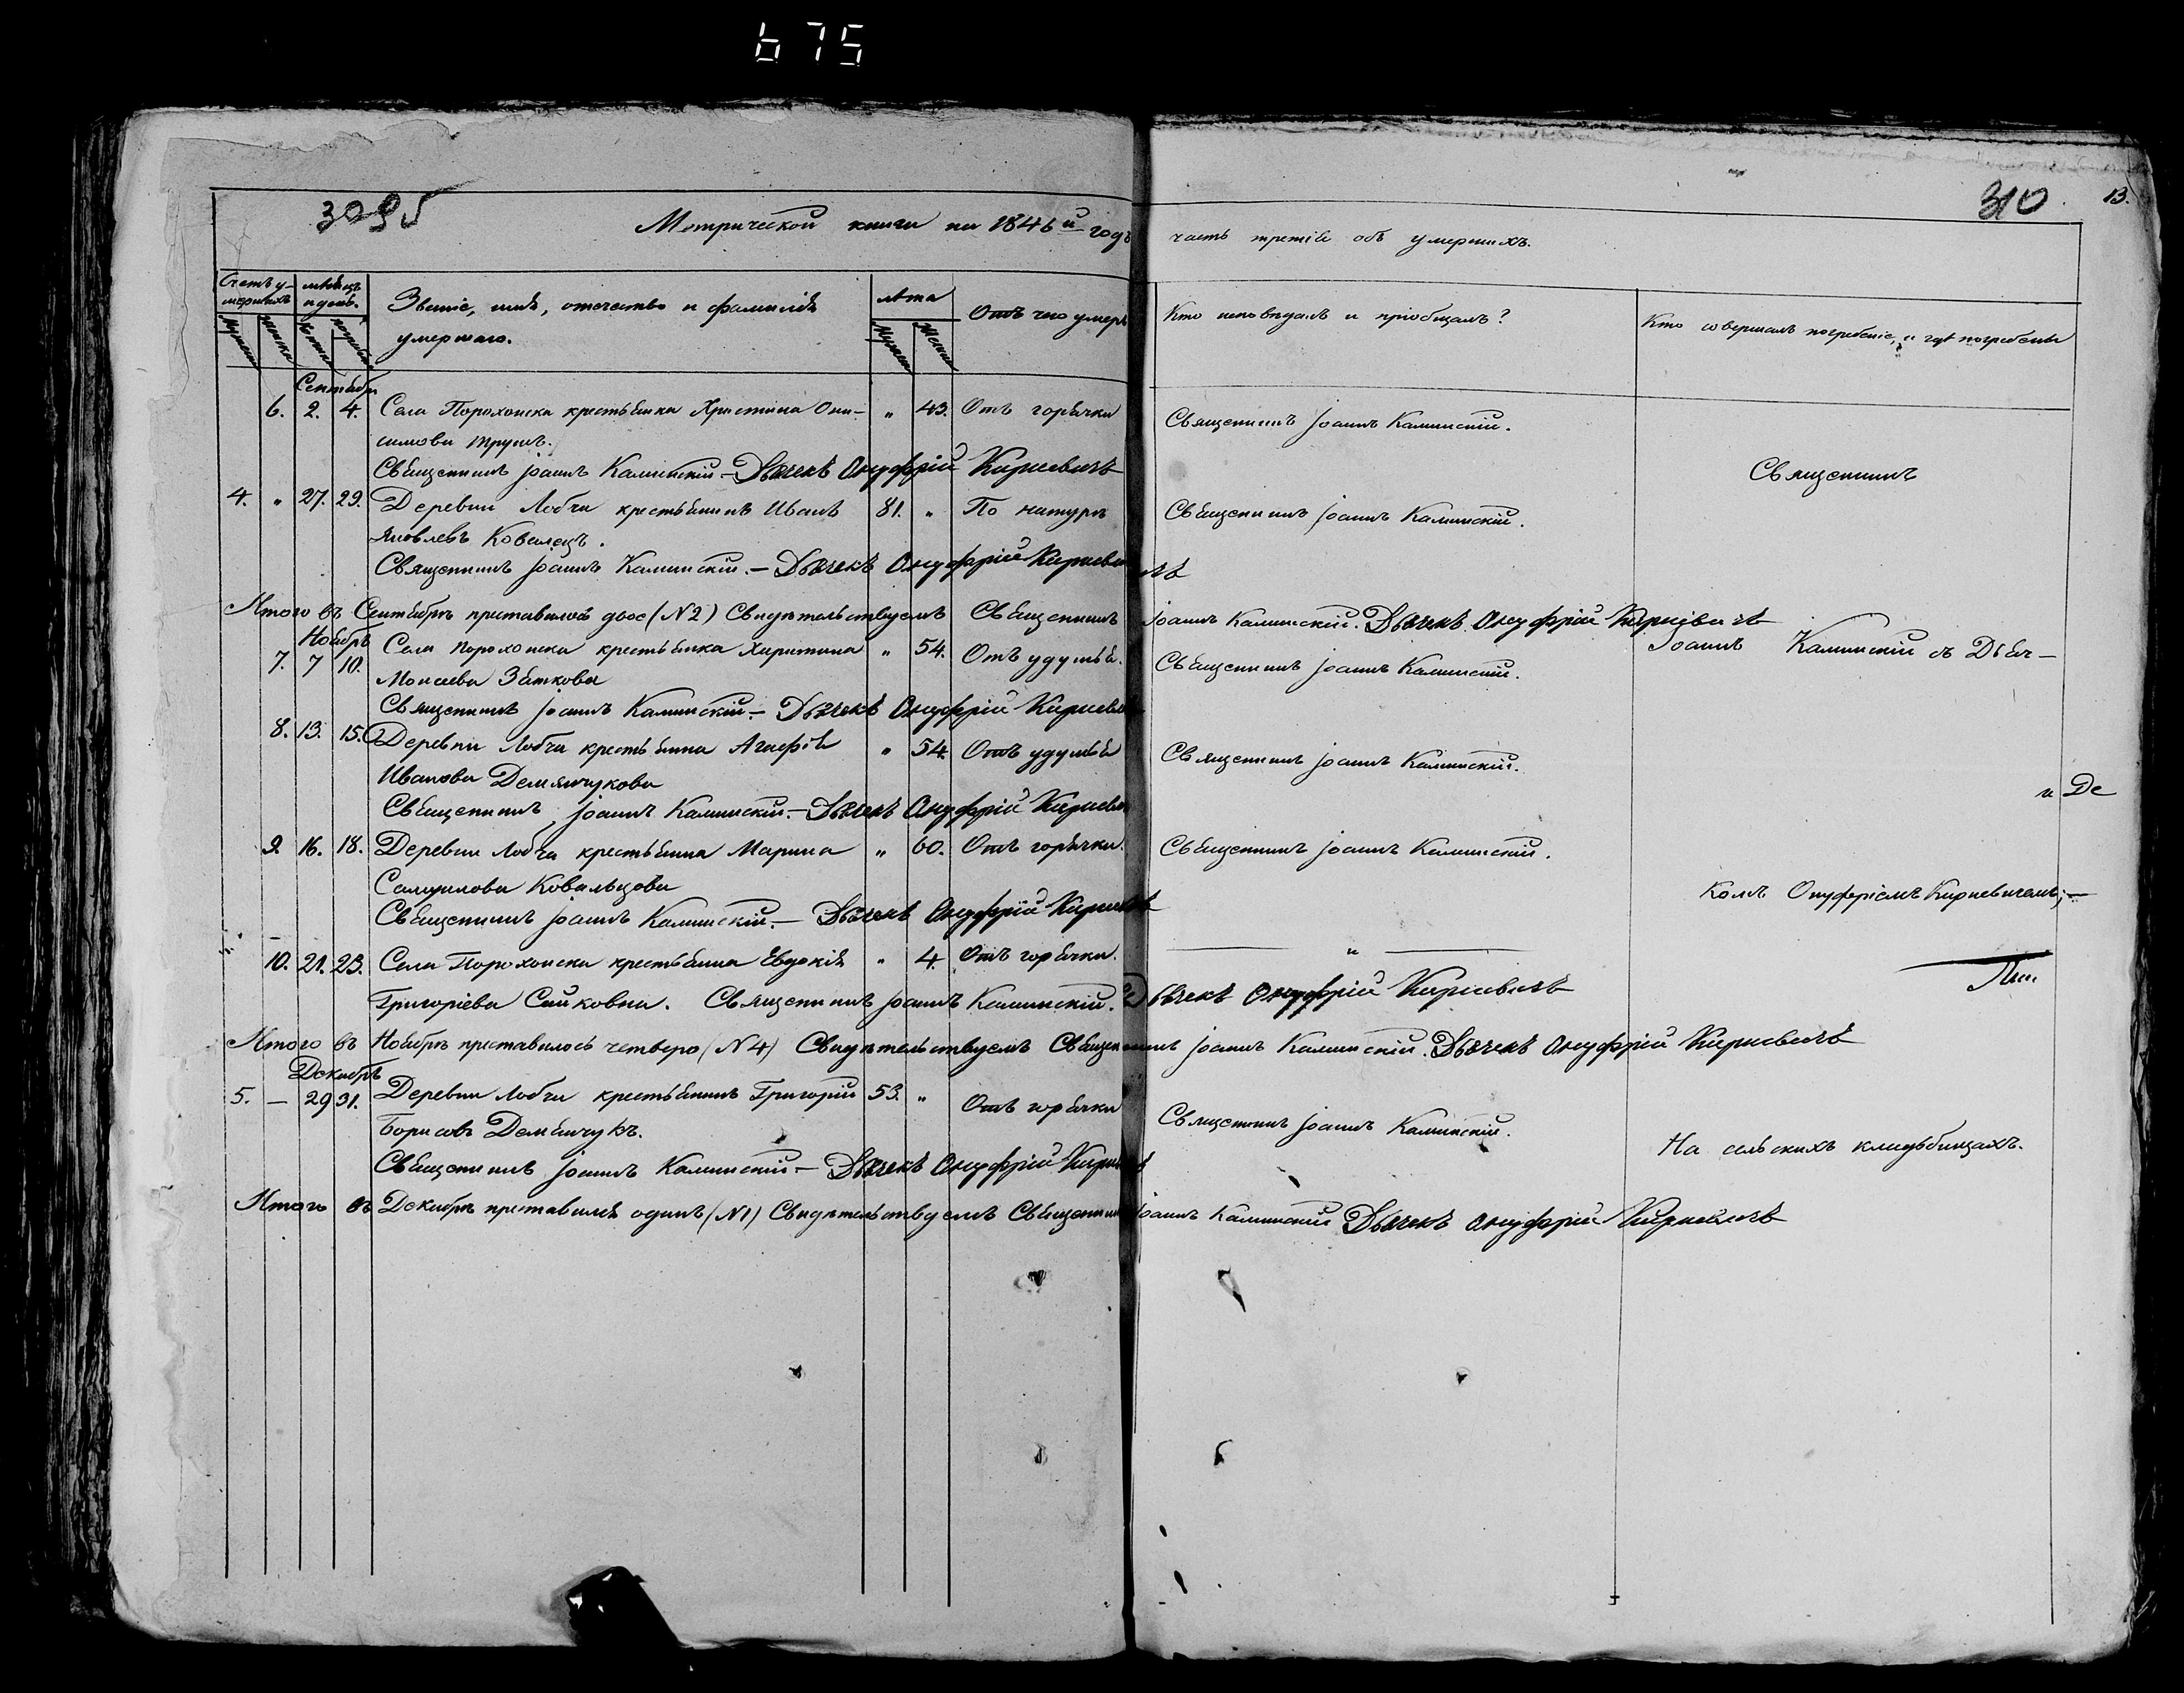 675
309об
310
13.
Метрической книги на 1846й годъ часть третія объ умершихъ.
Счетъ умершихъ
мѣсяцъ и день.
Званіе, имя, отечество и фамилія умершаго.
лѣта
Отъ чего умеръ
Кто исповѣдалъ и пріобщалъ?
Кто совершалъ погребеніе, и гдѣ погребены
Сентября
6. 2. 4. Села Порохонска крестьянка Христина Они- „ 43. Отъ горячки Священникъ Іоаннъ Каминскій.
симова
Священникъ Іоаннъ Каминскій. – Дьячекъ Онуфрій Кирневичъ
Священникъ
4. „ 27. 29. Деревни Лобчи крестьянинъ Иванъ 81. „ По натурѣ Священникъ Іоаннъ Каминскій.
Яковлевъ Ковалецъ.
Священникъ Іоаннъ Каминскій. – Дьячекъ Онуфрій Кирневичъ
Итого въ Сентябрѣ преставилось двое (№2) Свидѣтельствуемъ Священникъ Іоаннъ Каминскій. Дьячекъ Онуфрій Кирневичъ
Ноябрѣ
7. 7 10. Села Порохонска крестьянка Харитина „ 54. Отъ удушья. Священникъ Іоаннъ Каминскій.
Іоаннъ Каминскій съ Дьяч-
Моисеева
Священникъ Іоаннъ Каминскій. – Дьячекъ Онуфрій Кирневичъ
8. 13. 15. Деревни Лобчи крестьянка Агафія „ 54. Отъ удушья Священникъ Іоаннъ Каминскій.
Иванова Демянчукова
и Де
Священникъ Іоаннъ Каминскій. – Дьячекъ Онуфрій Кирневичъ
9. 16. 18. Деревни Лобчи крестьянка Марина „ 60. Отъ горячки. Священникъ Іоаннъ Каминскій.
Самуилова Ковальцова
комъ Онуфріемъ Кирневичемъ; –
Священникъ Іоаннъ Каминскій. – Дьячекъ Онуфрій Кирневичъ
10. 21. 23. Села Порохонска крестьянка Евдокія „ 4. Отъ горячки. — „ —
Григоріева Сайковна. Священникъ Іоаннъ Каминскій. Дьячекъ Онуфрій Кирневичъ
Итого въ Ноябрѣ преставилось четверо (№4) Свидѣтельствуемъ Священникъ Іоаннъ Каминскій. Дьячекъ Онуфрій Кирневичъ
Декабрѣ
5. – 29 31. Деревни Лобчи крестьянинъ Григорій 53. „ Отъ горячки Священникъ Іоаннъ Каминскій.
Борисовъ Демянчукъ.
На сельскихъ кладьбищахъ.
Священникъ Іоаннъ Каминскій – Дьячекъ Онуфрій Кирневичъ
Итого въ Декабрѣ преставился одинъ (№1) Свидѣтельствуемъ Священникъ Іоаннъ Каминскій Дьячекъ Онуфрій Кирневичъ